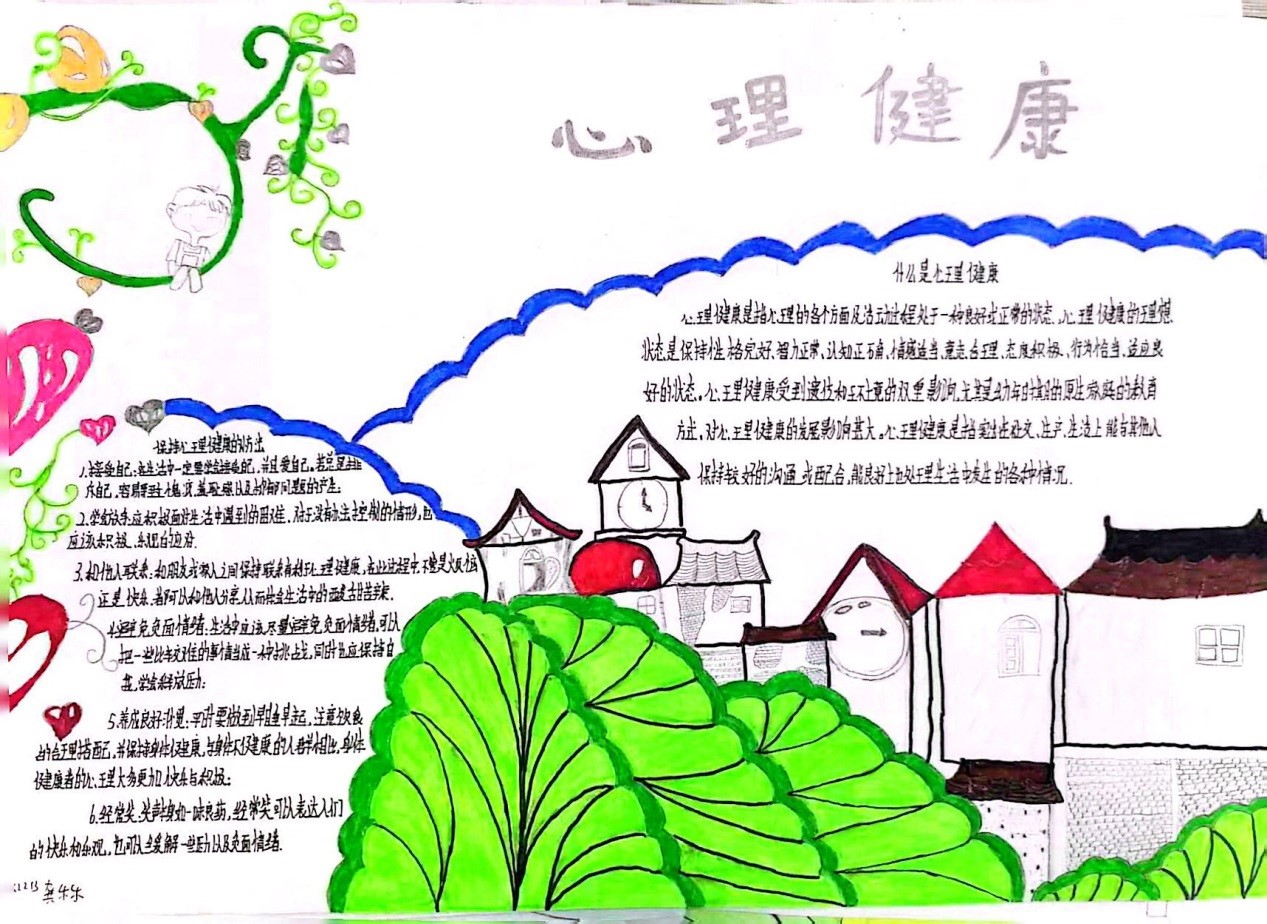 心理健康
什么是心理健康
心理健康是指心理的各个方面及活动过程处于一种良好或正常的状态.心理健康的理想
状态是保持性格完好,智力正常,认知正确,情感适当,意志合理,态度积极,行为恰当,适应良
好的状态。心理健康受到遗传和环境的双重影响,尤其是幼年时期的原生家庭的教育
方式,对心理健康的发展影响甚大。心理健康是指突出在社交、生产、生活上能与其他人
保持较好的沟通或配合,能良好地处理生活中发生的各种情况.
保持心理健康的方法
1.接受自己:在生活中一定要学会接受自己,并且爱自己。若总是排
斥自己,容易要产生愧疚,羞耻感以及抑郁问题的产生.
2.学会应对:应积极面对生活中遇到的困难,对于没有办法去控制的情形,也
应该积极、乐观的应对.
3.和他人联系:和朋友或家人之间保持联系有利于心理健康,在此过程中,不管是大
还是快乐,都可以和他人分享,从而体会生活中的酸甜苦辣.
4.避免负面情绪:生活中应该尽量避免负面情绪,可以
把一些比较艰难的事情当成一种挑战,同时也应保持自
在,学会释放压力;
5.养成良好习惯:平时要做到早睡早起,注意饮食
的合理搭配,并保持身体健康,与身体不健康的人群相比,身体
健康者的心理大多更加快乐与积极;
6.经常笑,笑声犹如一味良药,经常笑可以表达人们
的快乐和乐观,也可以缓解一些压力以及负面情绪.
龚乐乐